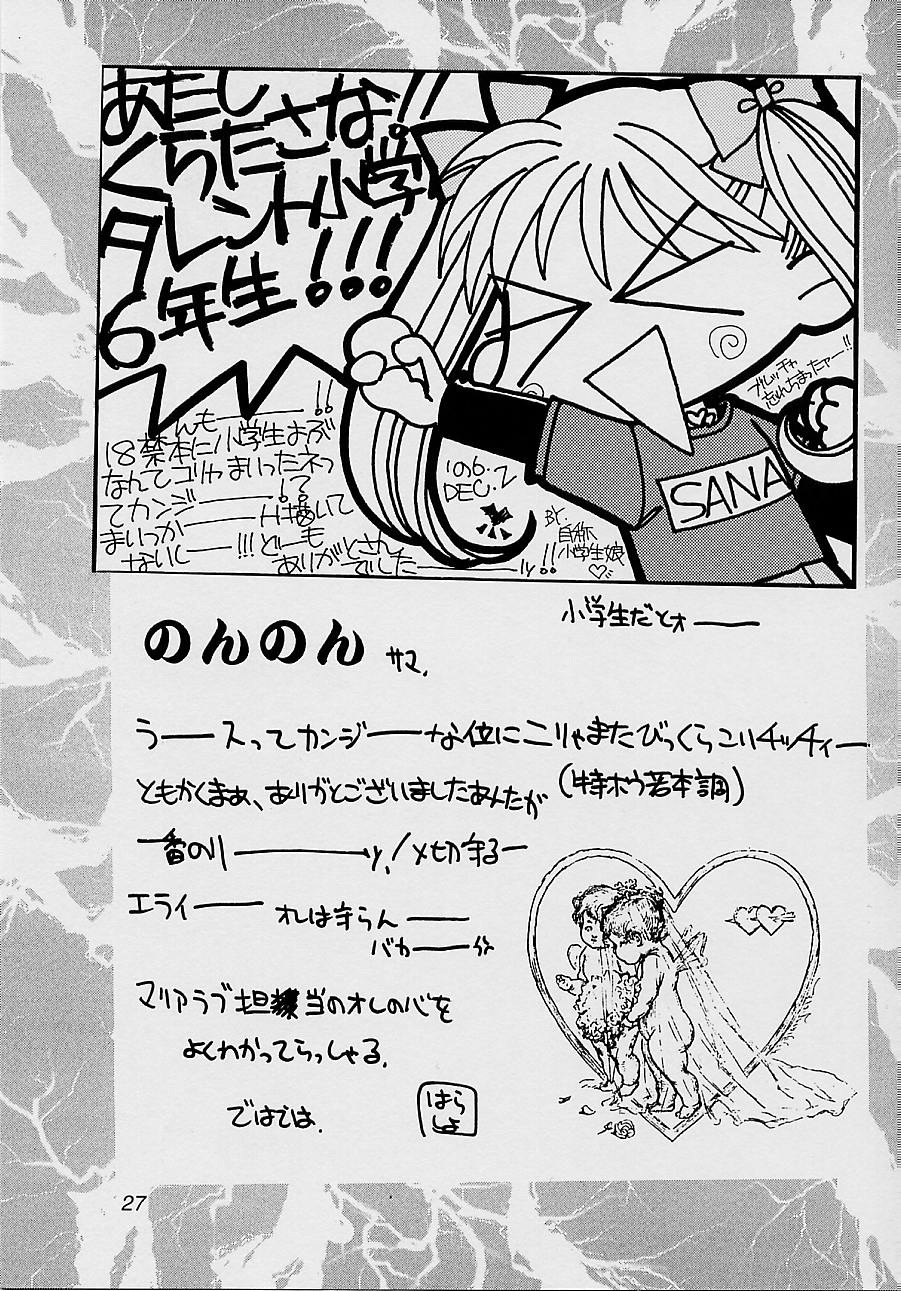 あたし
くらたさな!!
タレント小学
6年生!!!
ブレッチャ
忘れちまったァー!!
んもー!!
18禁本に小学生よぶ
なんてゴリャまいったネっ
てカンジー!?て
まいっかーH描いて
ないしー!!!どーも
ありがとさん
でしたーッ!!
'96.
DEC.2
SANA
BY
自称
小学生娘
小学生だとォ──
のんのん サマ.
うースってカンジーな位にこりゃまたびっくらこいチッチィー
ともかくまぁ、ありがとございましたあんたが
(特ボウ若本調)
一番のりーッ!〆切守るー
エライー
オレは守らん──
バカー
マリアラブ担当のオレの心を
よくわかってらっしゃる.
ではでは.
はら
しよ
27